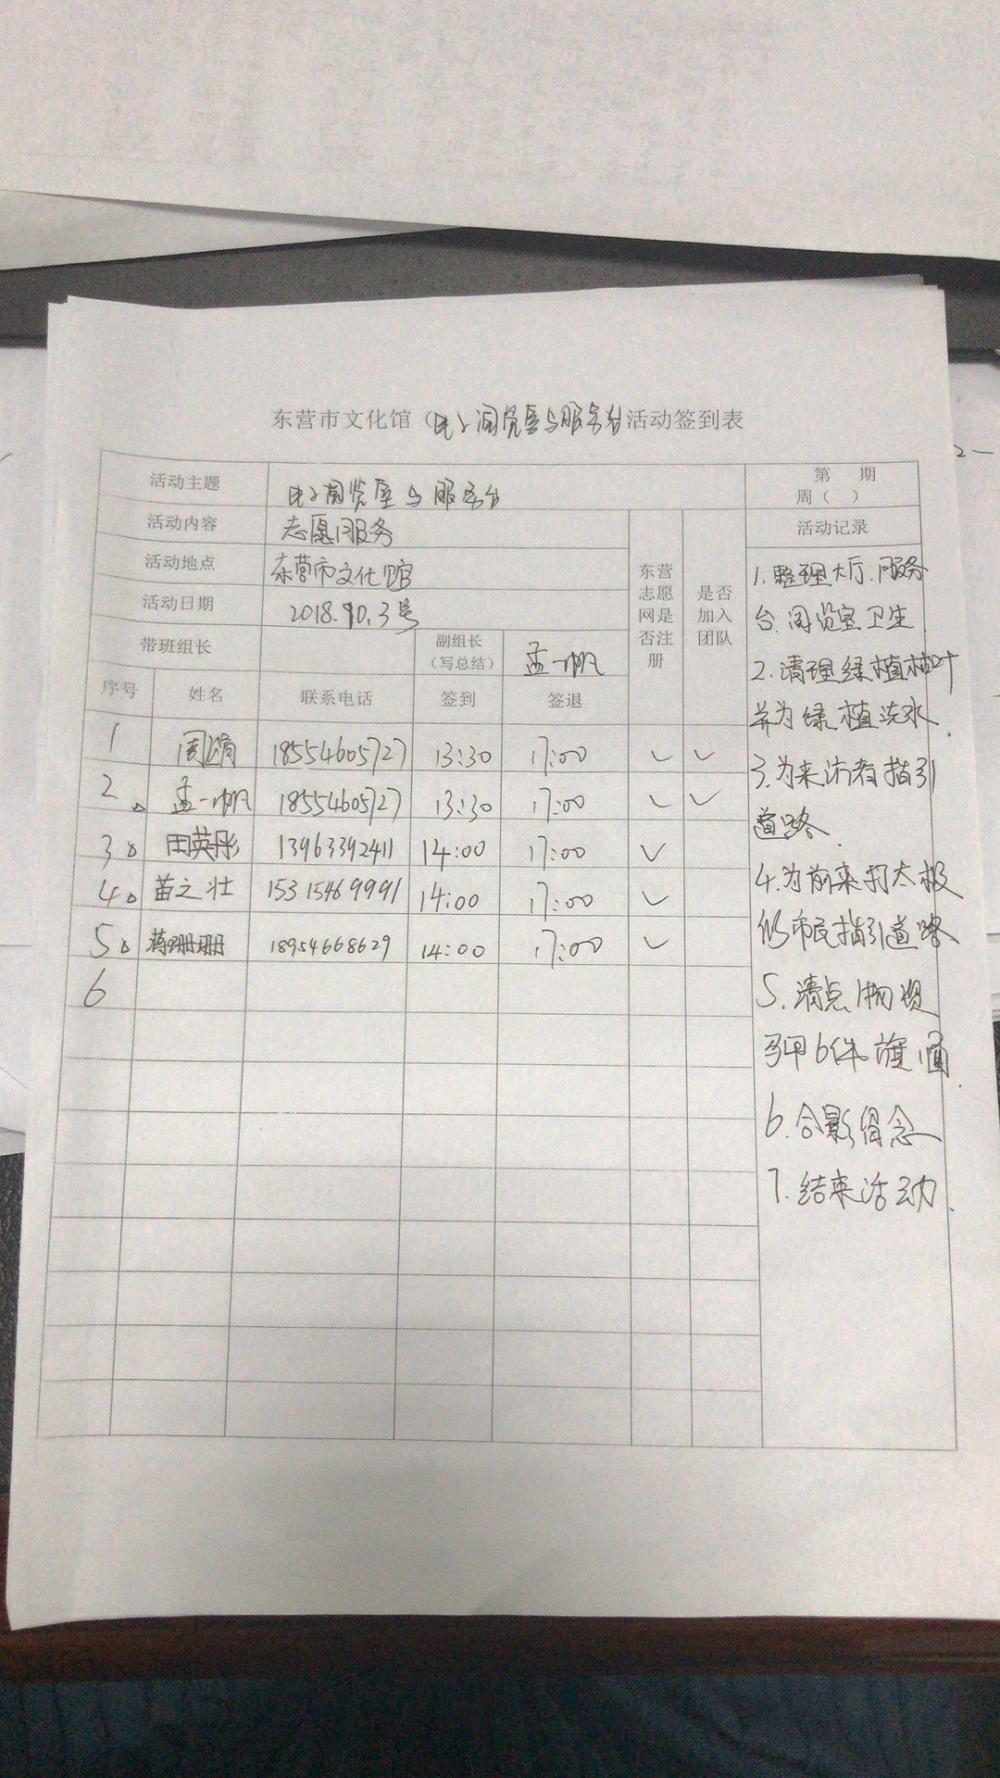 东营市文化馆（电子阅览室与服务台活动签到表
活动主题 电子阅览室与服务台 第 期
周（ ）
活动内容 志愿服务 活动记录
活动地点 东营市文化馆
活动日期 2018.10.3号
带班组长 副组长（写总结） 孟一帆
东营志愿网是否注册 是否加入团队
序号 姓名 联系电话 签到 签退
1 周娟 18554605727 13:30 17:00 ✓ ✓
2 孟一帆 18554605727 13:30 17:00 ✓ ✓
3 田英彤 13963392411 14:00 17:00 ✓
4 苗之壮 15315469991 14:00 17:00 ✓
5 蒋珊珊 18954668629 14:00 17:00 ✓
6
1.整理大厅.服务
台.阅览室卫生
2.清理绿植枯叶
并为绿植浇水.
3.为来访者指引
道路.
4.为前来打太极
的市民指引道路
5.清点物资
马甲6件.旗1面.
6.合影留念
7.结束活动.